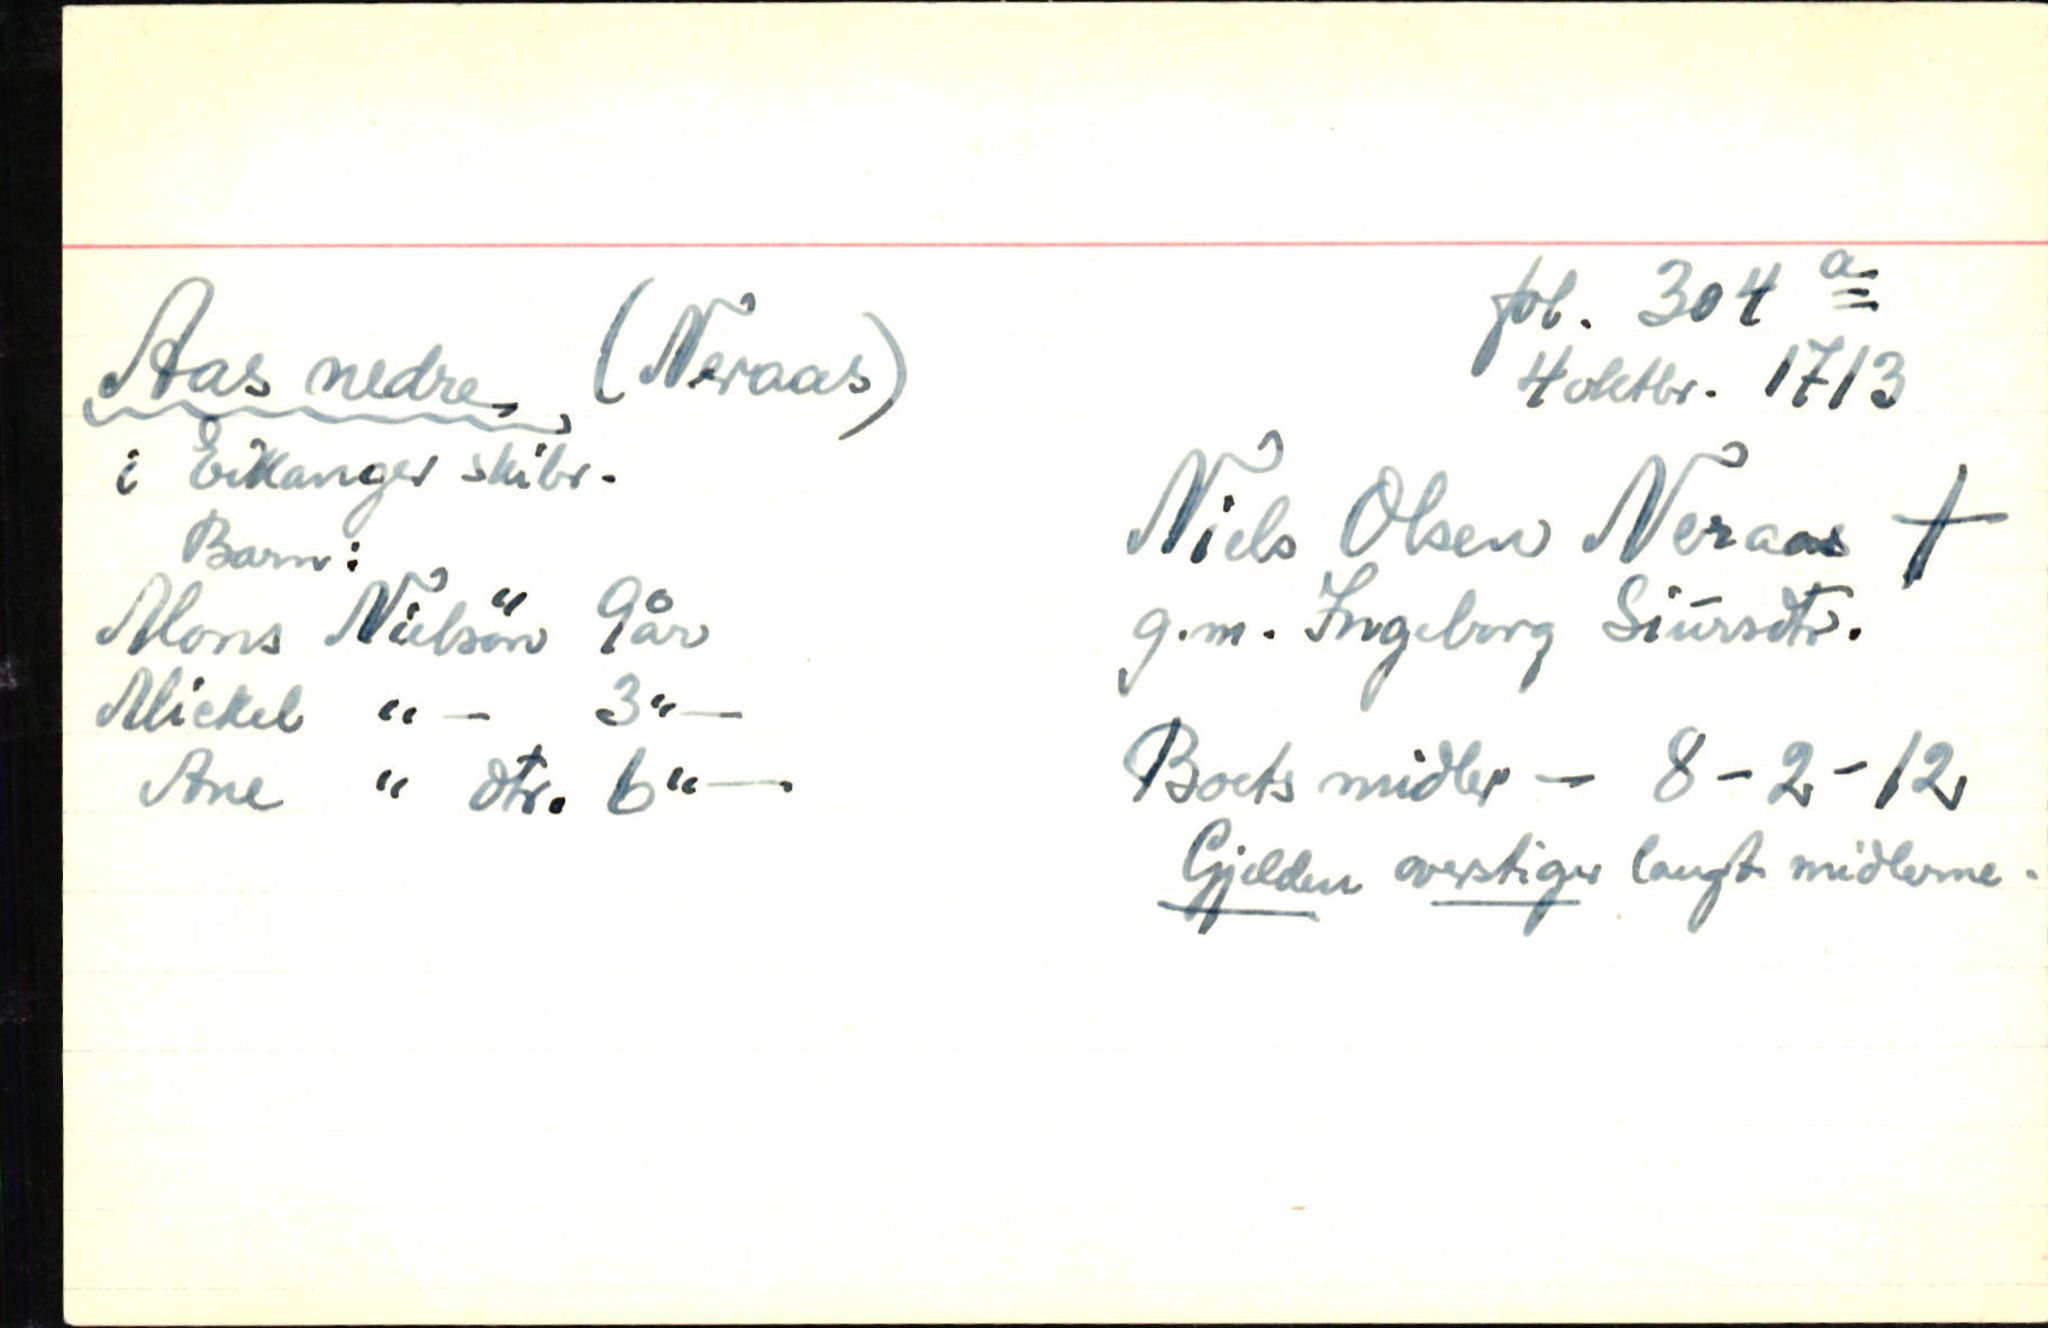 Aas nedre, (Neraas)
i Eikanger skibr.
Barn:
Mons Nielsön 9 år
Mickel "— 3"—
Ane " dtr. 6"—.
fol. 304 a
4 oktbr. 1713
Niels Olsen Neraas †
g.m. Ingeborg Siursdtr.
Boets midler — 8-2-12
Gjelden overstiger langt midlerne.